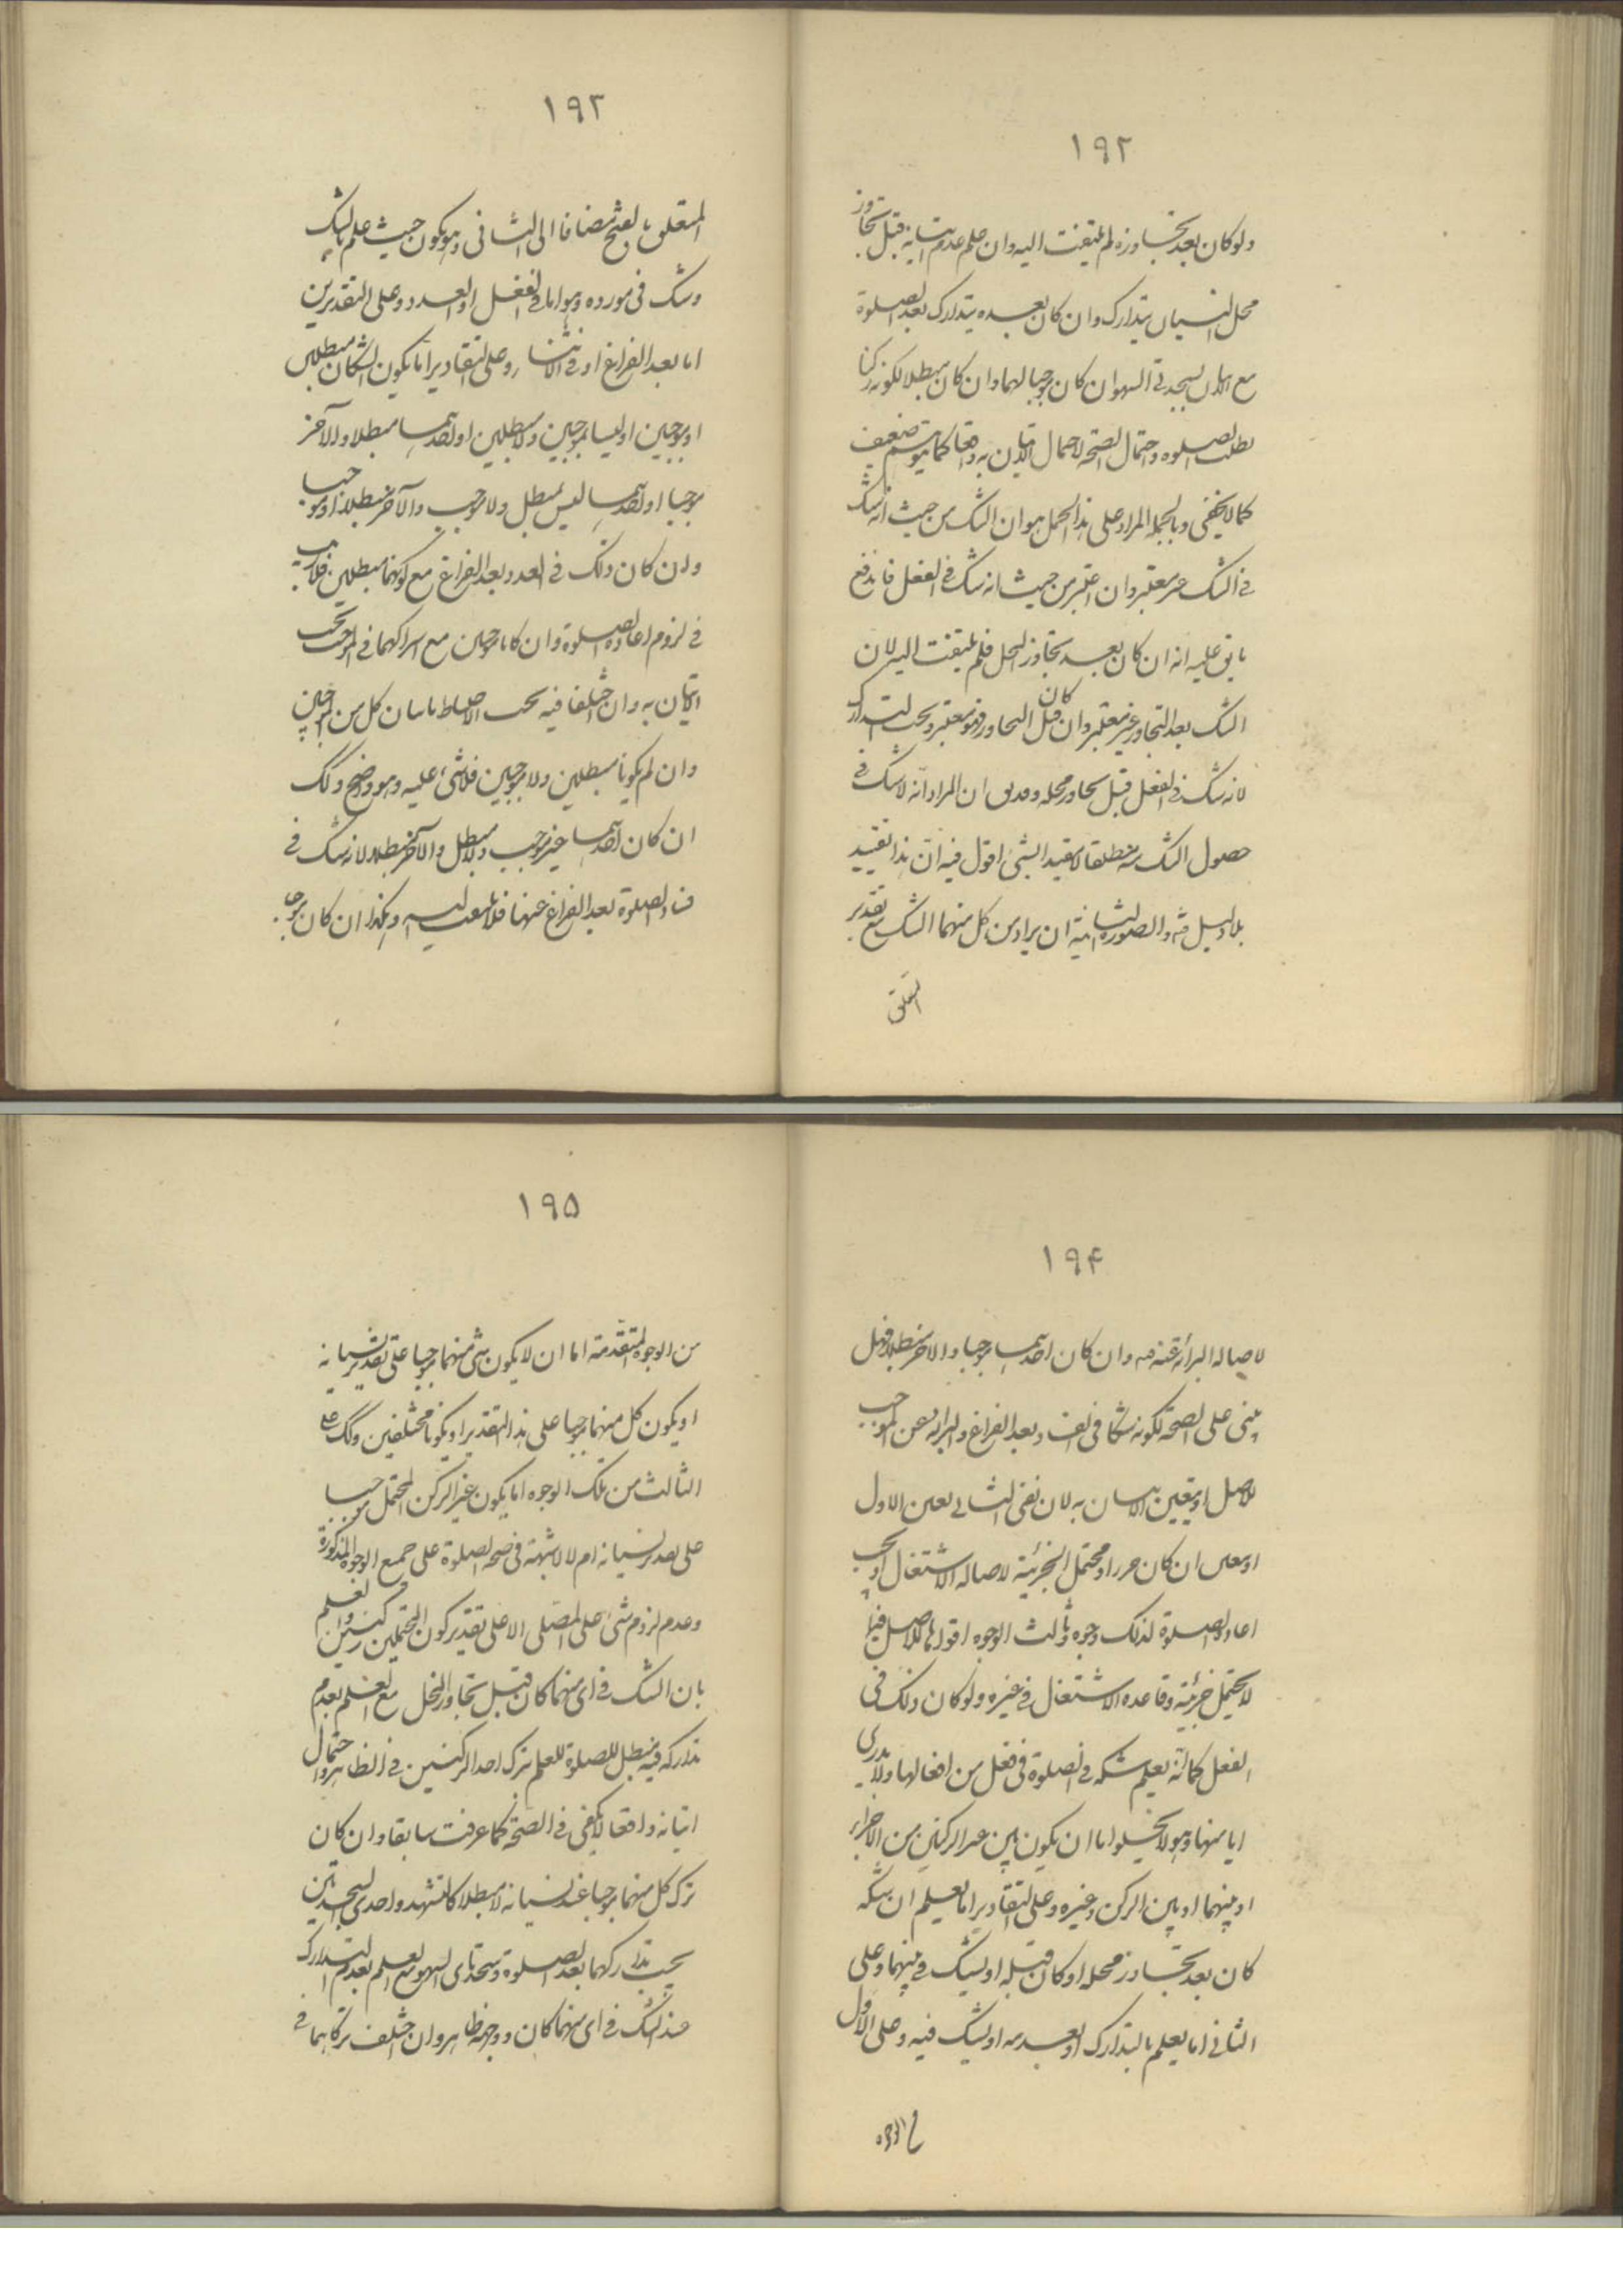 ١٩٢
ولو كان بعد تجاوزه لم يلتفت اليه وان علم عدم اتيانه قبل تجاوز
محل النسيان يتدارك وان كان بعده يتدارك بعد الصلوة
مع السهو ان كان موجبا لهما وان كان مبطلا لكونه ركنا
بطلت الصلوة واحتمال الصحة لاحتمال الاتيان به واقعا كما هو ضعيف
كما لا يخفى وبالجملة المراد على هذا الحمل هو ان الشك من حيث انه شك
في الشك غير معتبر وان اعتبر من حيث انه شك في الفعل فاندفع
ما يق عليه انه ان كان بعد تجاوز المحل فلم يلتفت اليه لان
الشك بعد التجاوز غير معتبر وان كان قبل التجاوز فهو معتبر ويجب التدارك
لانه شك في الفعل قبل تجاوز محله وقد يق ان المراد انه لا شك في
حصول الشك منه مطلقا لا بقيد الشئ اقول فيه ان هذا تقييد
بلا دليل والصورة الثانية ان يراد من كل منهما الشك مع تقدير
المتعلق
١٩٣
المتعلق بالفتح مضافا الى الثانى وهو يكون حيث علم بالشك
وشك فى مورده وهو اما فى الفعل او العدد وعلى التقديرين
اما بعد الفراغ او فى الاثناء وعلى التقادير اما يكون الشكان مبطلين
او موجبين او ليسا بموجبين ولا مبطلين او احدهما مبطلا والآخر
موجبا او احدهما ليس بمبطل ولا موجب والآخر مبطلا او موجبا
وان كان ذلك فى العدد وبعد الفراغ مع كونهما مبطلين فلا ريب
فى لزوم اعادة الصلوة وان كانا موجبين مع اشتراكهما فى الموجب يجب
الاتيان به وان اختلفا فيه يجب الاحتياط باتيان كل من الموجبين
وان لم يكونا مبطلين ولا موجبين فلا شئ عليه وهو واضح وكذلك
ان كان احدهما غير موجب ولا مبطل والآخر مبطلا لانه شك فى
فساد الصلوة بعد الفراغ عنها فلا يلتفت اليه وهكذا ان كان موجبا
١٩۴
لاصالة البرائة عنه وان كان احدهما موجبا والاخر مبطلا فهل
يبنى على الصحة لكونه شكا فى الفساد بعد الفراغ والبرائة عن الموجب
للاصل او يتعين الاتيان به لان نفى الثانى يعين الاول
ان كان محتمل الجزئية لاصالة الاشتغال او يجب
اعادة الصلوة لذلك وجوه وثالث الوجوه اقولها للاصل فيما
لا يحتمل جزئيته وقاعدة الاشتغال فى غيره ولو كان ذلك فى
الفعل كما انه يعلم شكه فى الصلوة فى فعل من افعالها ولا يدرى
ايا منها وهو لا يخلو اما ان يكون بين غير الركنين من الاجزاء
او بينهما او بين الركن وغيره وعلى التقادير اما يعلم ان شكه
كان بعد تجاوز محله او كان قبله او يشك فى بينهما وعلى
الثانى اما يعلم بالتدارك او بعدمه او يشك فيه وعلى الاول
من الوجوه
١٩۵
من الوجوه المتقدمة اما ان لا يكون شئ منهما موجبا على تقدير نسيانه
او يكون كل منهما موجبا على هذا التقدير او يكونا مختلفين وكذلك على
الثالث من تلك الوجوه اما يكون غير الركن المحتمل موجبا
على تقدير نسيانه ام لا لا شبهة فى صحة الصلوة على جميع الوجوه المذكورة
وعدم لزوم شئ على المصلى الا على تقدير كون المحتملين ركنين والعلم
بان الشك فى اى منهما كان قبل تجاوز المحل مع العلم بعدم
تداركه فيه فتبطل الصلوة للعلم بترك احد الركنين فى الظاهر واحتمال
اتيانه واقعا لا يكفى فى الصحة كما عرفت سابقا وان كان
ترك كل منهما موجبا عند نسيانه لا مبطلا كالتشهد واحدى السجدتين
يجب تداركهما بعد الصلوة وسجدتاى السهو مع العلم بعدم التدارك
عند الشك فى اى منهما كان ووجهه ظاهر وان اختلف تركاهما فى